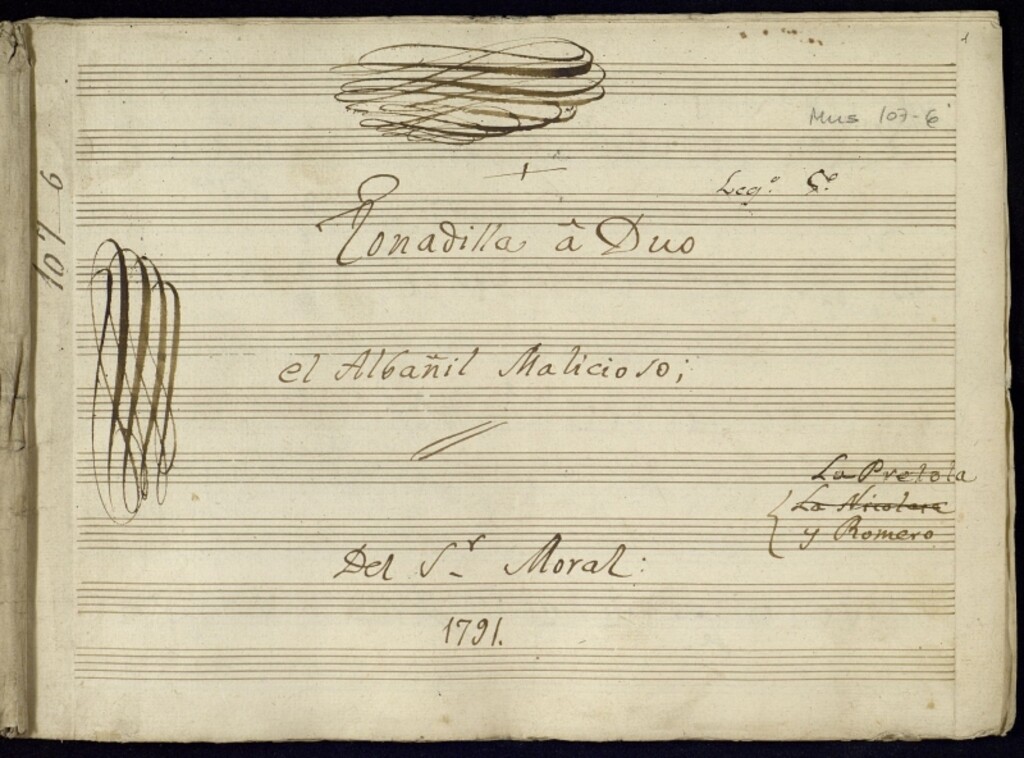 1
Mus 107-6
107 6
Leg.º 5.º
Tonadilla â Duo
el Albañil Malicioso;
La Pretola
La Nicolasa
y Romero
Del S.r Moral:
1791.